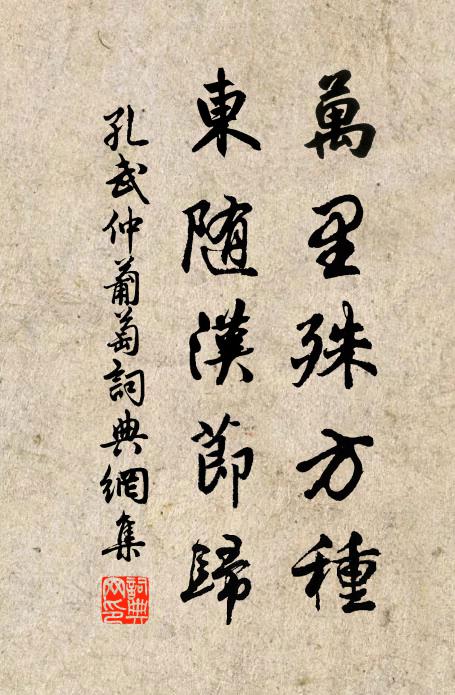 萬里殊方種
東随漢節歸
孔武仲葡萄詞典網集
詞典
网印